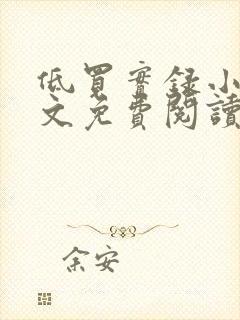 低買實錄小
文免費閱讀
余安